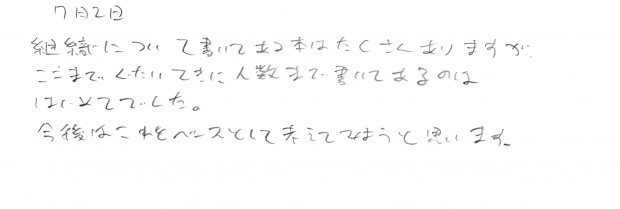 7月2日
継続について書いてある本はたくさんありますが、
ここまでぐたいてきに人数まで書いてあるのは
はじめてでした。
今後はこれをベースとして考えてみようと思います。